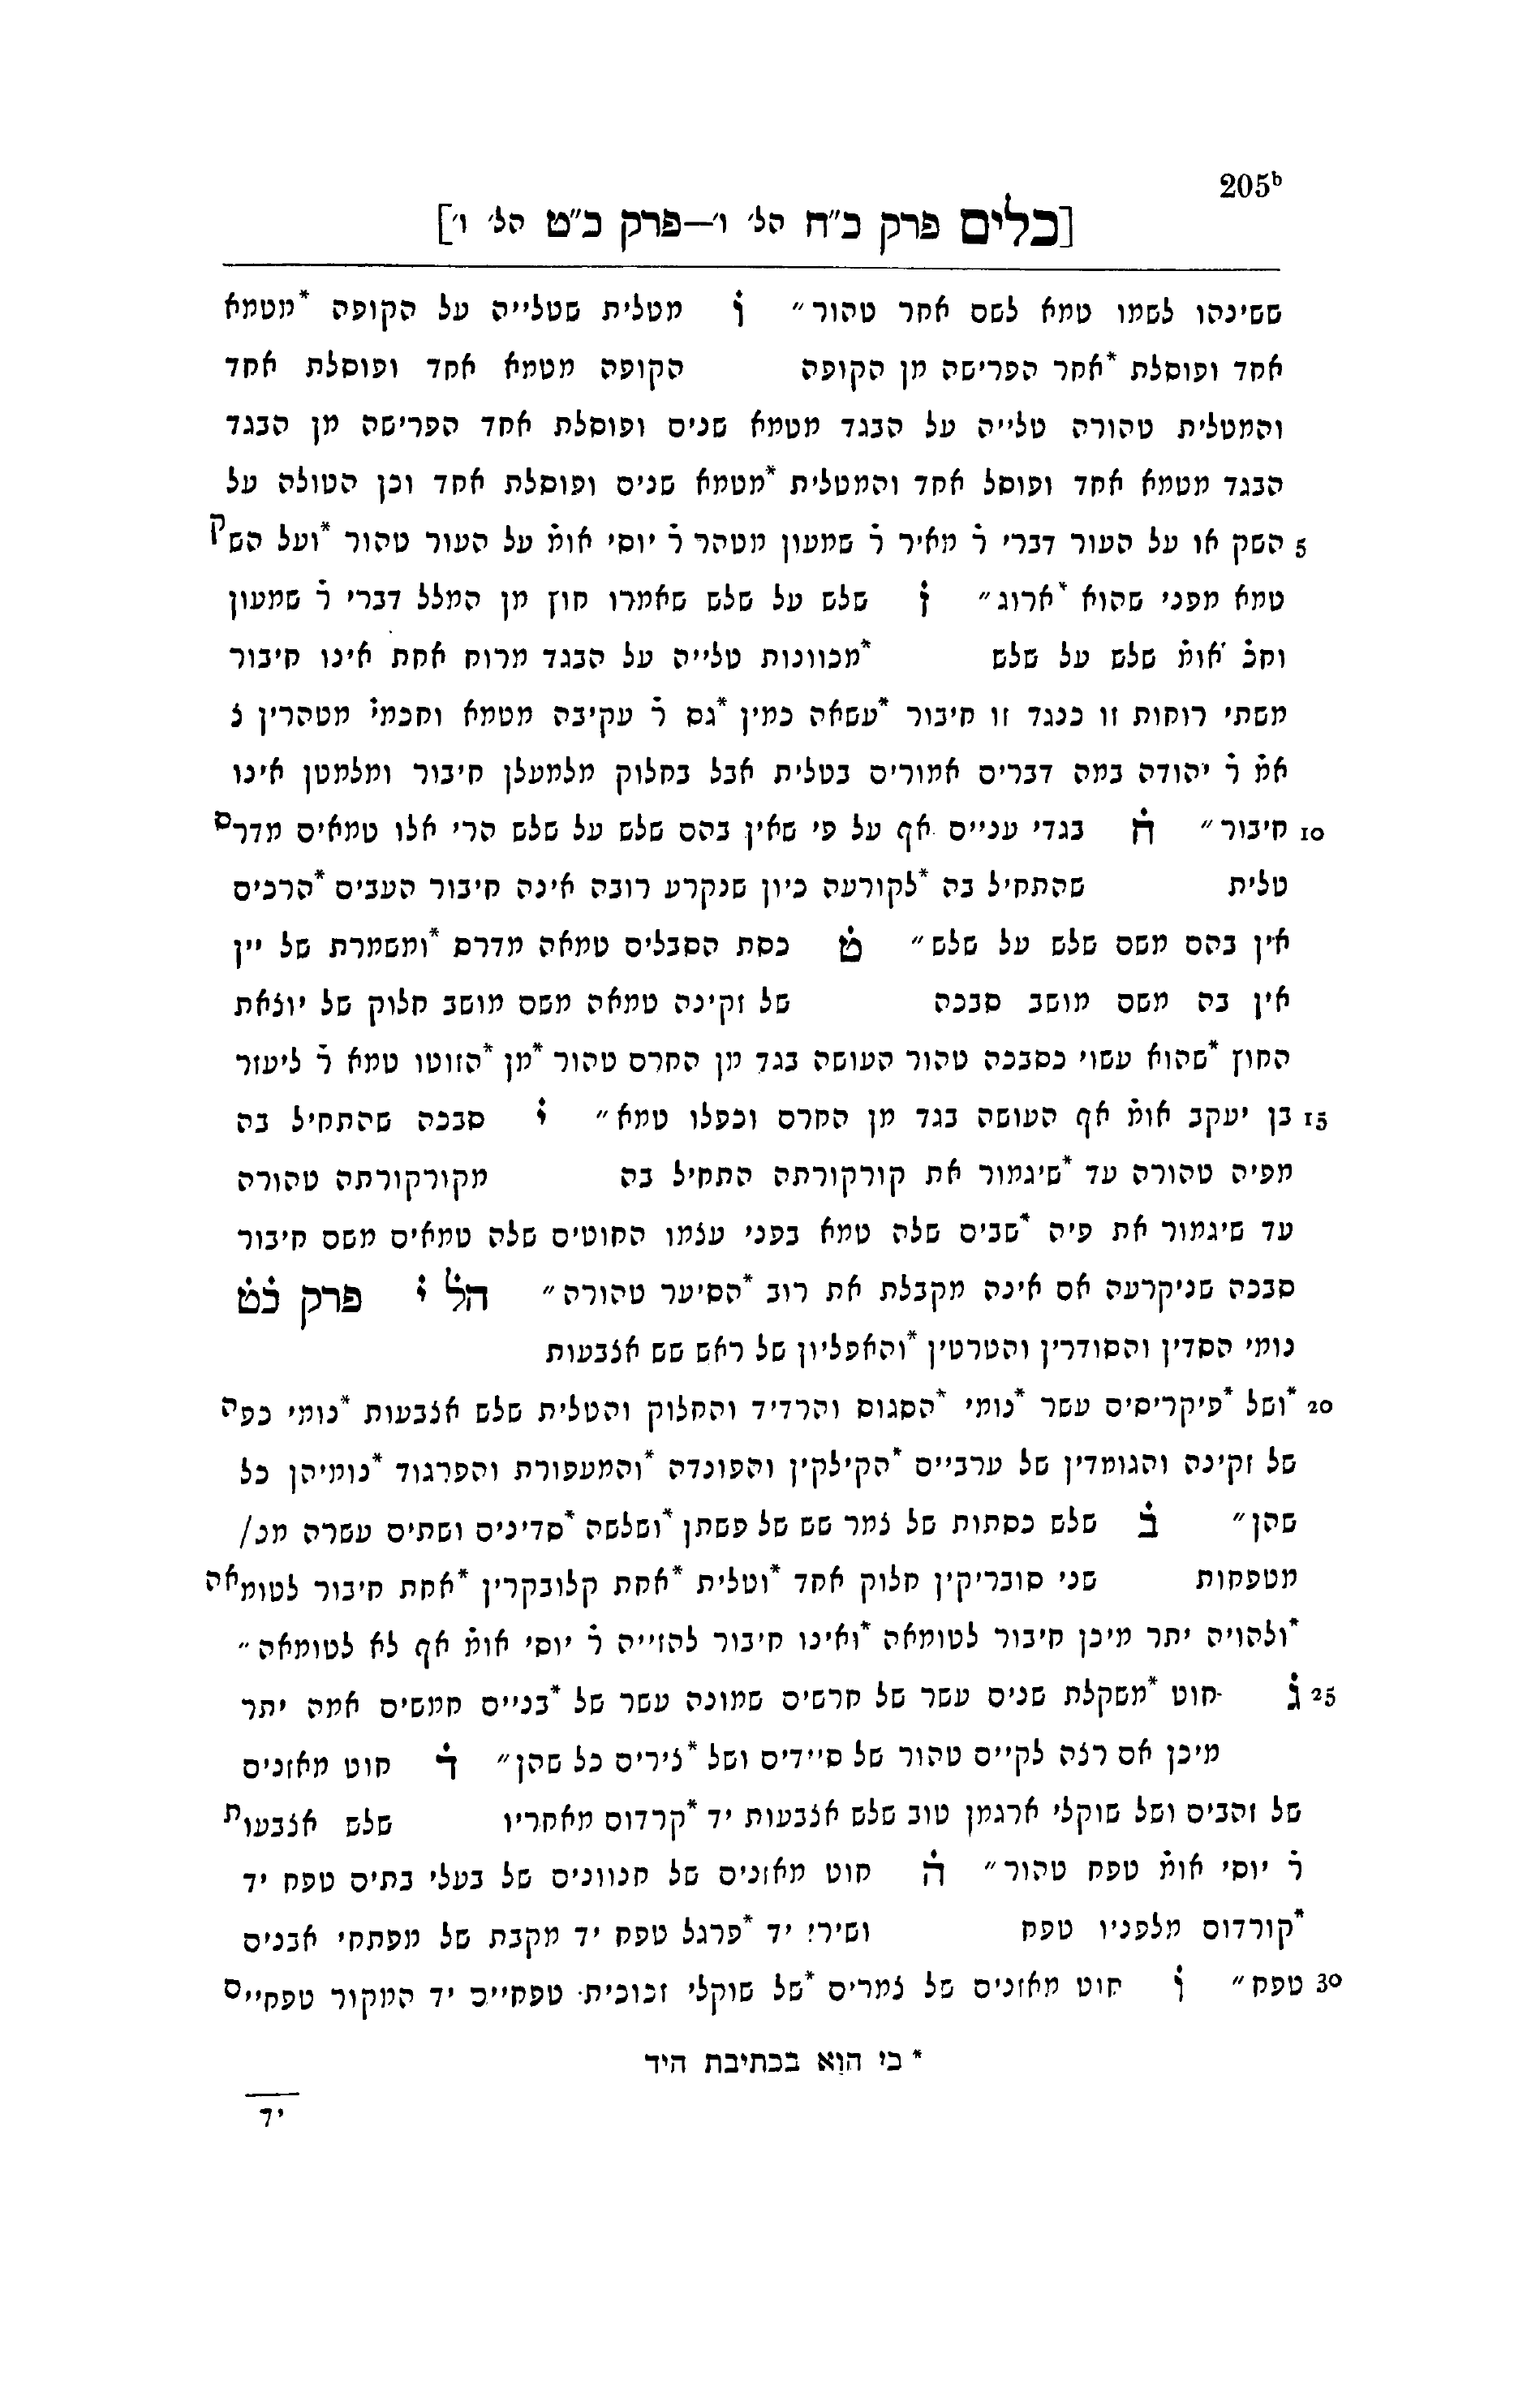 205b
[כלים פרק כ"ח הל' ו'—פרק כ"ט הל' ו']
ששינהו לשמו טמא לשם אחר טהור" ו̇ מטלית שטלייה על הקופה *מטמא
אחד ופוסלת *אחר הפרישה מן הקופה הקופה מטמא אחד ופוסלת אחד
והמטלית טהורה טלייה על הבגד מטמא שנים ופוסלת אחד הפרישה מן הבגד
הבגד מטמא אחד ופוסל אחד והמטלית *מטמא שנים ופוסלת אחד וכן הטולה על
5 השק או על העור דברי ר̇ מאיר ר̇ שמעון מטהר ר̇ יוסי אומ̇ על העור טהור *ועל השק
טמא מפני שהוא *ארוג" ז̇ שלש על שלש שאמרו חוץ מן המלל דברי ר̇ שמעון
וחכ̇ אומ̇ שלש על שלש *מכוונות טלייה על הבגד מרוח אחת אינו חיבור
משתי רוחות זו כנגד זו חיבור *עשאה כמין *גם ר̇ עקיבה מטמא וחכמי̇ מטהרין צ
אמ̇ ר̇ יהודה במה דברים אמורים בטלית אבל בחלוק מלמעלן חיבור ומלמטן אינו
10 חיבור" ח̇ בגדי עניים אף על פי שאין בהם שלש על שלש הרי אלו טמאים מדרס
טלית שהתחיל בה *לקורעה כיון שנקרע רובה אינה חיבור העבים *הרכים
אין בהם משם שלש על שלש" ט̇ כסת הסבלים טמאה מדרס *ומשמרת של יין
אין בה משם מושב סבכה של זקינה טמאה משם מושב חלוק של יוצאת
החוץ *שהוא עשוי כסבכה טהור העושה בגד מן החרם טהור *מן *הזוטו טמא ר̇ ליעזר
15 בן יעקב אומ̇ אף העושה בגד מן החרם וכפלו טמא" י̇ סבכה שהתחיל בה
מפיה טהורה עד *שיגמור את קורקורתה התחיל בה מקורקורתה טהורה
עד שיגמור את פיה *שבים שלה טמא בפני עצמו החוטים שלה טמאים משם חיבור
סבכה שניקרעה אם אינה מקבלת את רוב *הסיער טהורה" הל̇ י̇ פרק כ̇ט̇
נומי הסדין והסודרין והטרטין *והאפליון של ראש שש אצבעות
20 *ושל *פיקריסים עשר *נומי *הסגוס והרדיד והחלוק והטלית שלש אצבעות *נומי כפה
של זקינה והגומדין של ערביים *הקילקין והפונדה *והמעפורת והפרגוד *נומיהן כל
שהן" ב̇ שלש כסתות של צמר שש של פשתן *ושלשה *סדינים ושתים עשרה מנ/
מטפחות שני סובריקין חלוק אחד *וטלית *אחת קלובקרין *אחת חיבור לטומאה
*ולהויה יתר מיכן חיבור לטומאה *ואינו חיבור להזייה ר̇ יוסי אומ̇ אף לא לטומאה"
25 ג̇ חוט *משקלת שנים עשר של חרשים שמונה עשר של *בניים חמשים אמה יתר
מיכן אם רצה לקיים טהור של סיידים ושל *צירים כל שהן" ד̇ חוט מאזנים
של זהבים ושל שוקלי ארגמן טוב שלש אצבעות יד *קרדום מאחריו שלש אצבעות
ר̇ יוסי אומ̇ טפח טהור" ה̇ חוט מאזנים של חנוונים של בעלי בתים טפח יד
*קורדום מלפניו טפח ושירי יד *פרגל טפח יד מקבת של מפתחי אבנים
30 טפח" ו̇ חוט מאזנים של צמרים *של שוקלי זכוכית טפחיים יד המקור טפחיים
* כי הוא בכתיבת היד
יד